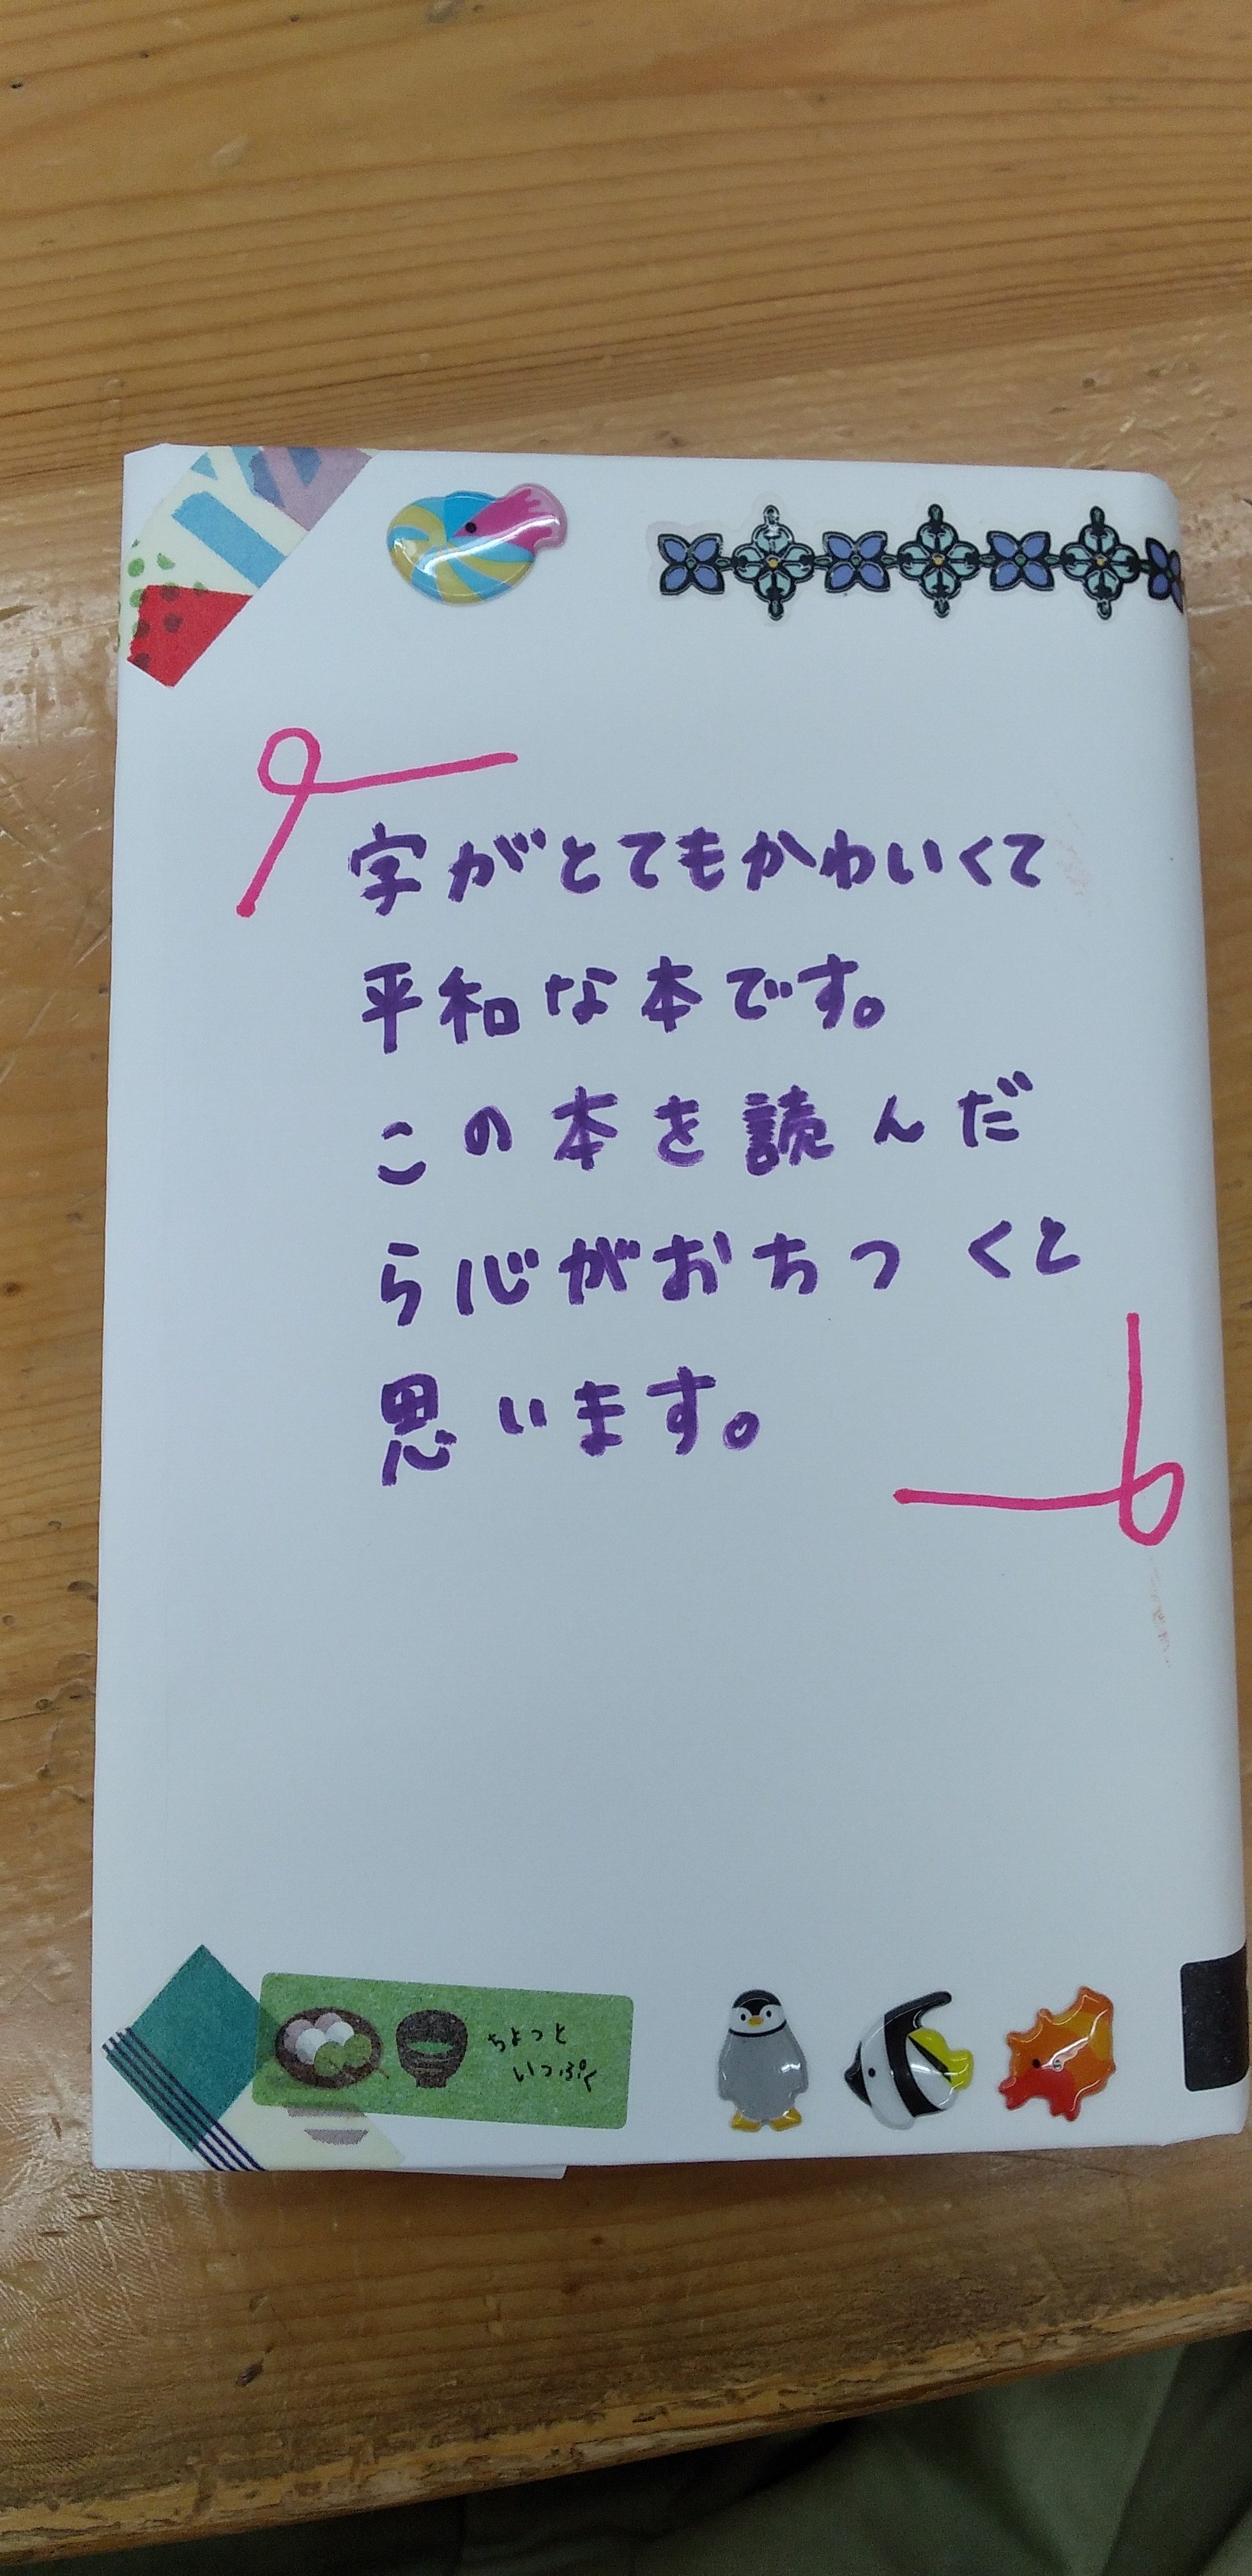 字がとてもかわいくて
平和な本です。
この本を読んだ
ら心がおちつくと
思います。
ちょっと
いっぷく